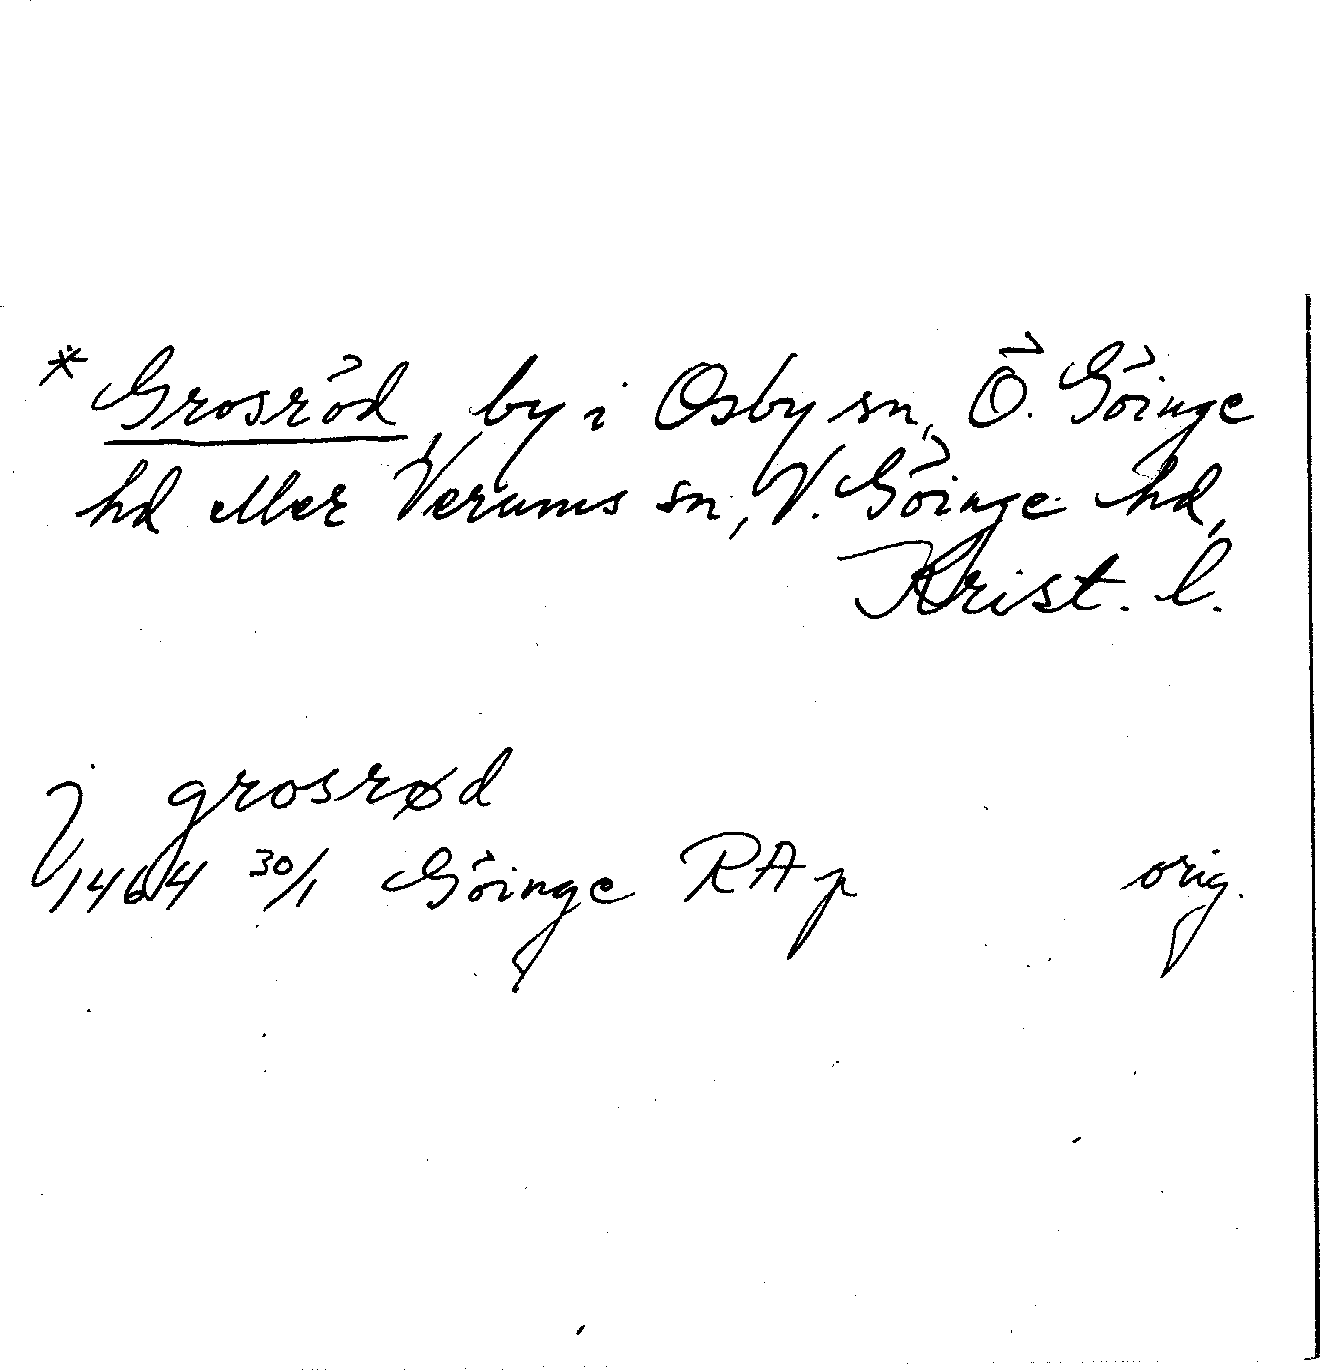 * Grosröd, by i Osby sn, Ö. Göinge
hd eller Verums sn, V. Göinge hd,
Krist. l.
j grosrød
1464 30/1 Göinge RAp orig.